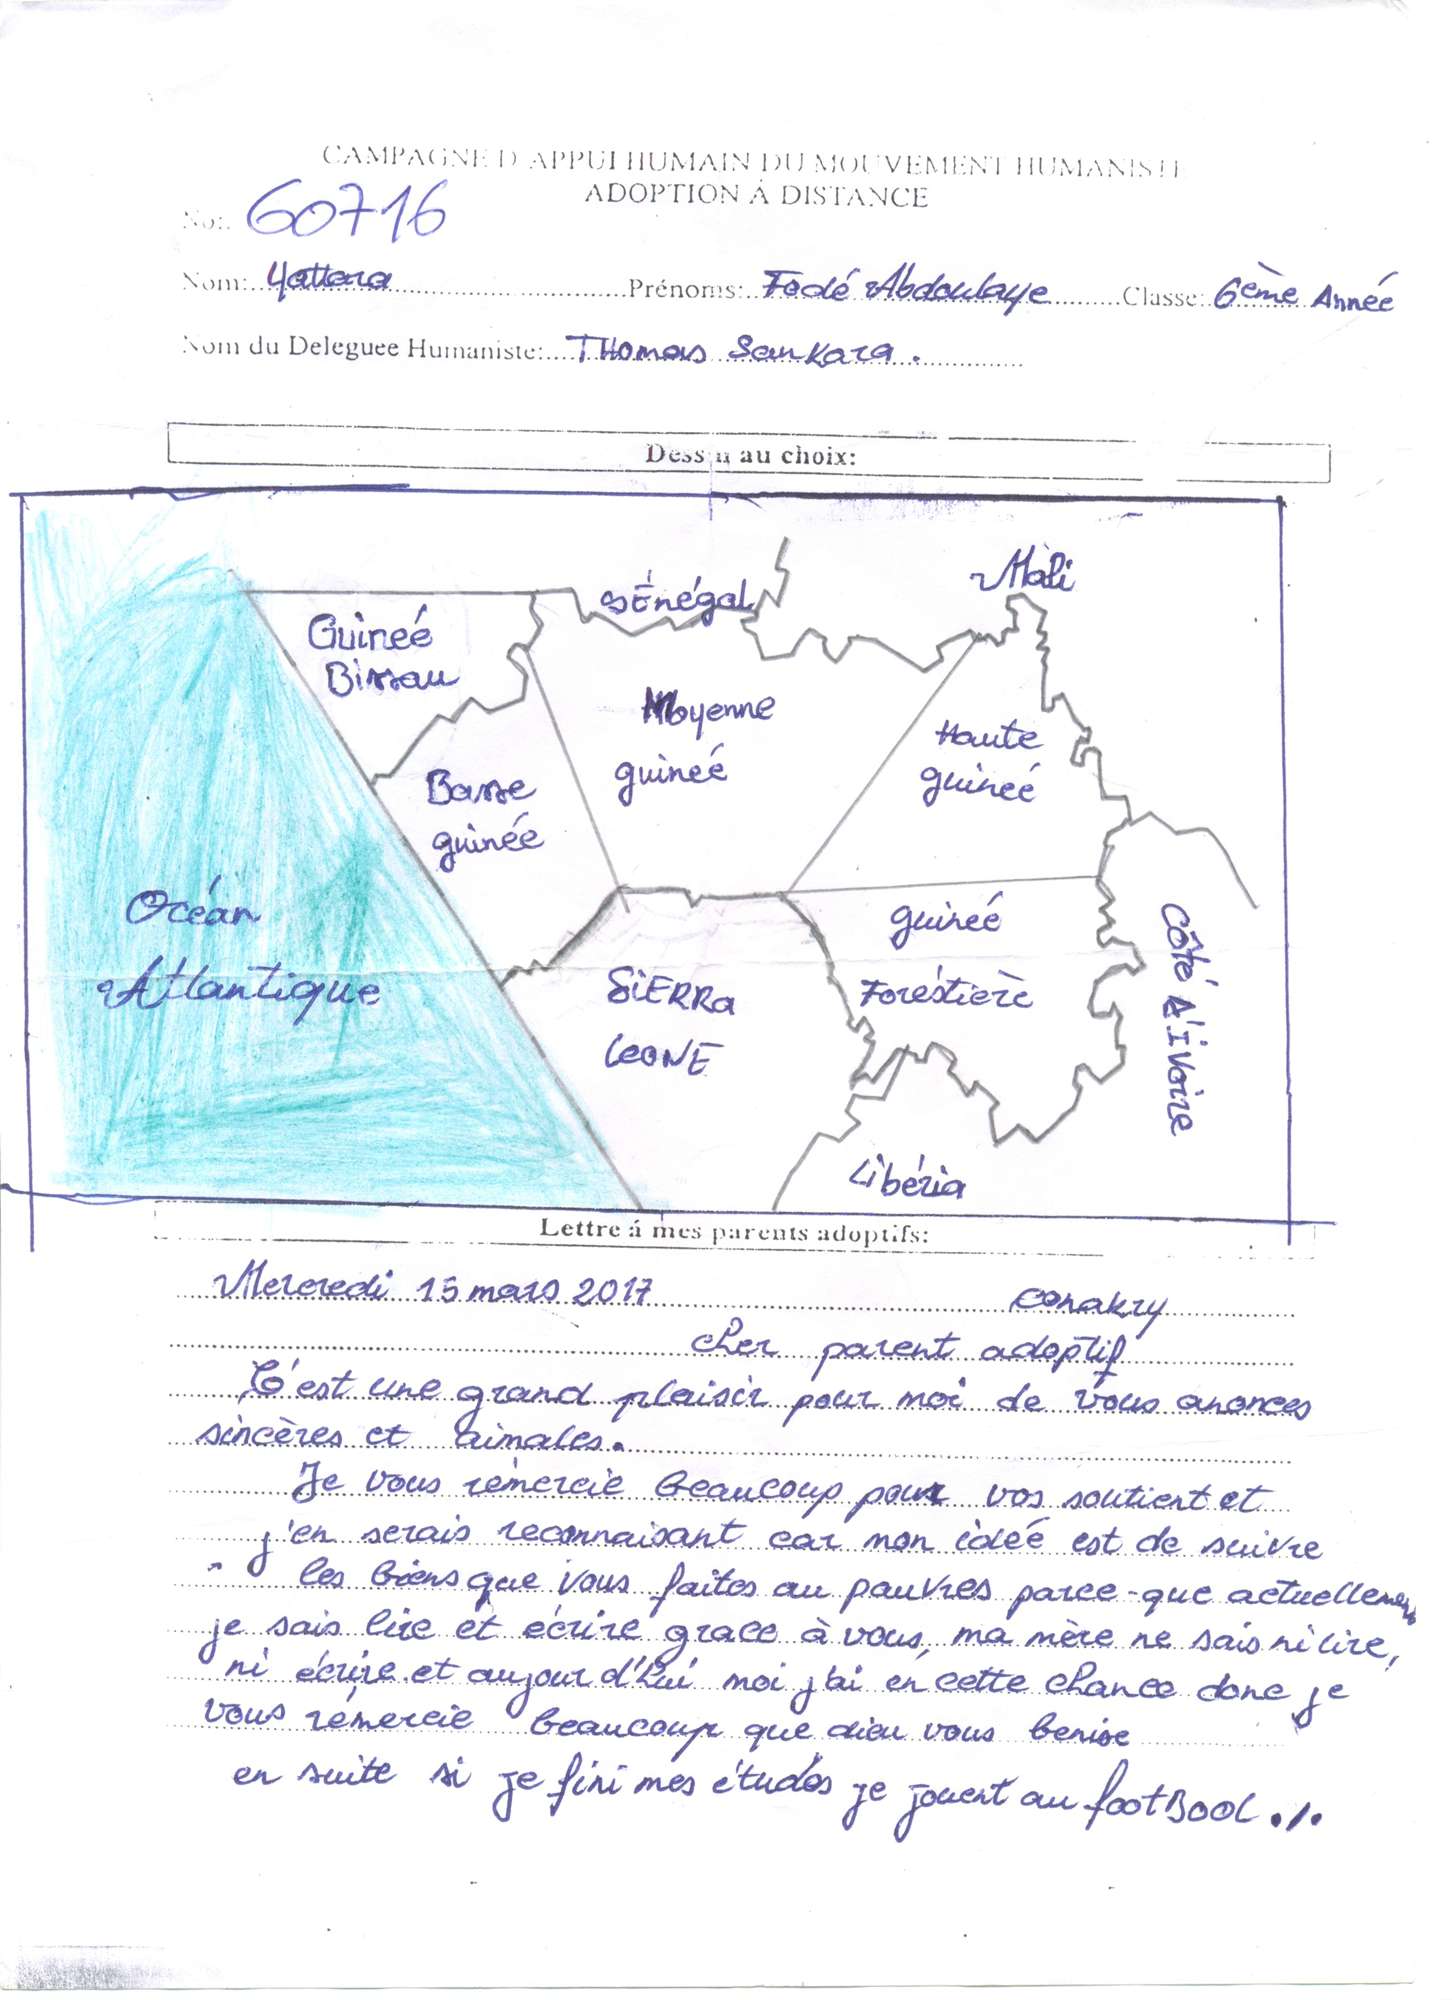 CAMPAGNE D'APPUI HUMAIN DU MOUVEMENT HUMANISTE
ADOPTION Á DISTANCE
No: 60716
Nom: Yattara Prénoms: Fodé Abdoulaye Classe: 6ème Année
Nom du Deleguee Humaniste: THomas Sankara.
Dessin au choix:
Mali
Sénégal
Guineé
Bissau
Moyenne
guineé
Haute
guineé
Basse
guinée
Océan
Atlantique
guineé
Foréstierè
Côté d'Ivoire
SiERRa
LeONE
Libéria
Lettre á mes parents adoptifs:
Mercredi 15 mars 2017 conakry
cher parent adoptif
C'est une grand plaisir pour moi de vous anonces
sincères et aimales.
Je vous rémercie beaucoup pour vos soutient et
j'en serais reconnaisant car mon ideé est de suivre
les biens que vous faites au pauvres parce-que actuellement
je sais lire et écrire grace à vous, ma mère ne sais ni lire,
ni écrire et aujourd'hui moi j'ai en cette chance donc je
vous rémercie beaucoup que dieu vous benise
en suite si je fini mes études je jouent au footBOOL ./.